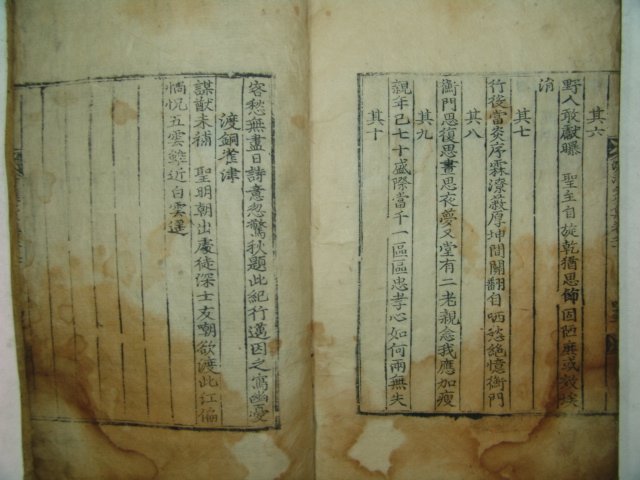 其六
野人敢獻曝　聖主自旋乾猶思飾固陋庶或效埃
涓
其七
行後當炎序霖潦蔽厚坤間關翻自哂愁絶憶衡門
其八
衡門思復思晝思夜夢又堂有二老親念我應加瘦
其九
親年已七十盛際當千一區區忠孝心如何兩無失
其十
客愁無盡日詩意忽驚秋題此紀行邁因之寫幽憂
渡銅雀津
謀猷未補　聖明朝出處徒深士友嘲欲渡此江偏
惝怳五雲雖近白雲遥